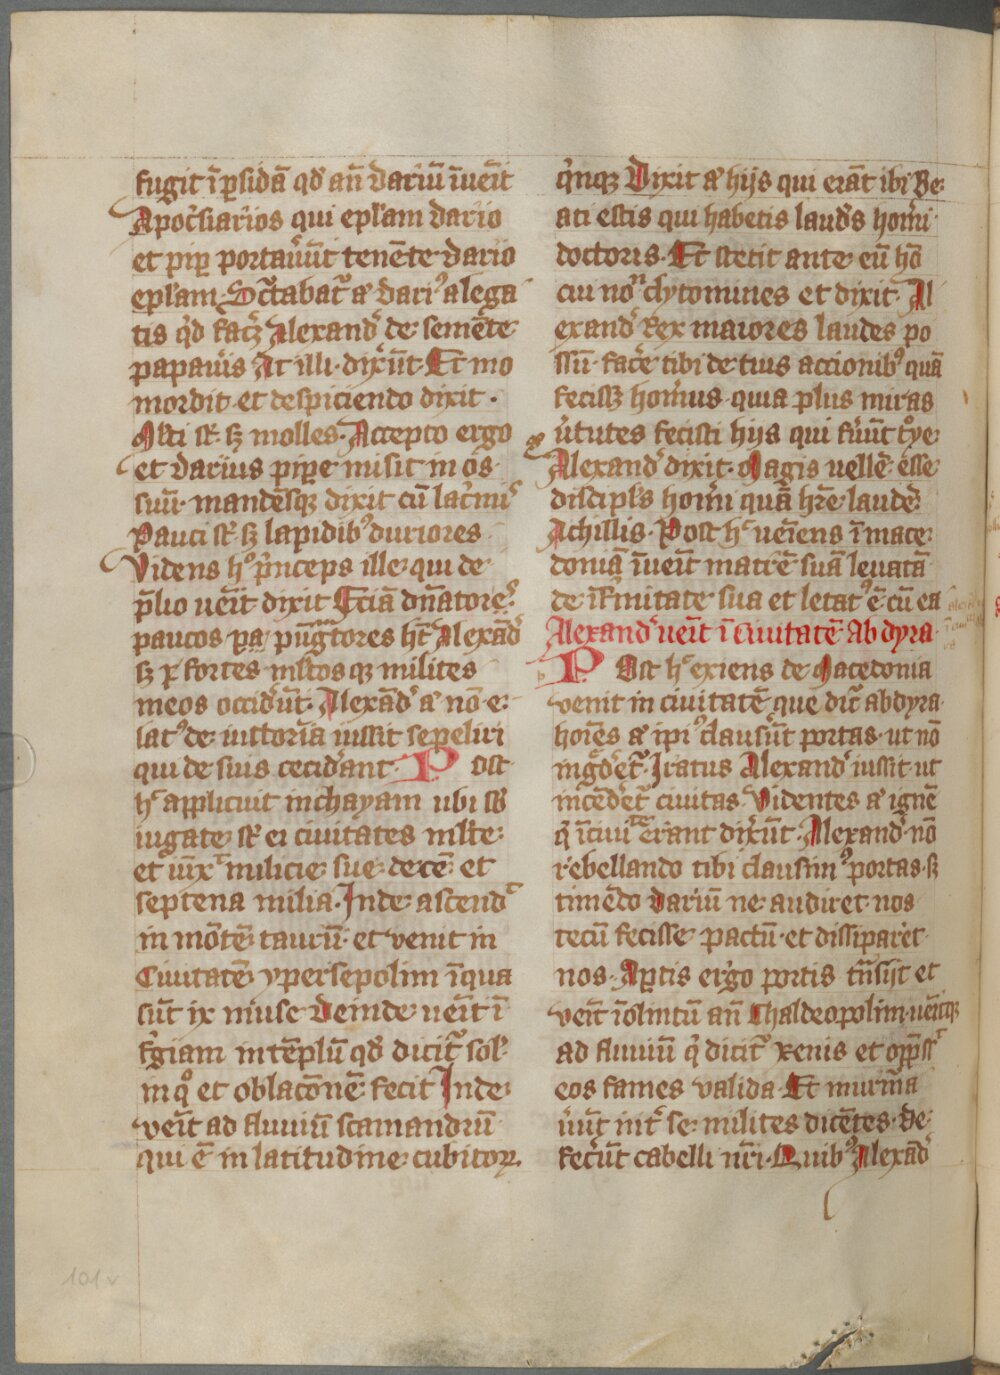 fugit ī ꝑsidā qđ añ dariū īueīt
Apocͬsiarios qui ep̄lam dario
et pip̄ portauēūt tenēte dario
ep̄lam. Sc̄tabatᷓ aͧ dariꝰ alega
tis qͥd facēꝫ Alexandᷓ de semēte
papaūis At illi dixēūt Et mo
mordit et despiciendo dixit.
Ml̄ti sͭ ſꝫ molles. Accepto ergo
et darius pipe misit in os
suū mandēsqꝫ dixit cū lacͥmiˢ
Pauci sͭ ſꝫ lapidibꝰ duriores
Videns hͦ pͥnceps ille qui de
p̄lio uēit dixit Eciā dn̄atoreˢ
paucos ꝑa pūg̃tores hn̄t Alexādᷓ
ſꝫ ꝑ fortes m̄ltosqꝫ milites
meos occidēūt. Alexādᷓ aͧ nō e
latꝰ de uittoria iussit sepeliri
qui de suis cecidᷓant. P ost
hͨ applicuit in chayam ubi sb̄
iugate sͭ ei ciuitates ml̄te
et iūxͭ milicie sue decē et
septena milia. Inde ascendᷓ
in mōtē taurū et venit in
Ciuitatē ypersepolim ī qua
sūt ix muse Deinde uēit ī
fͥgiam in tēplū qđ dicitᷓ sol̄
in qͦ et oblacōnē fecit Inde
veīt ad fluuiū scamandrū
qui ē in latitudine cubitoꝝ
qͥnqꝫ Dixit aͧ hijs qui erāt ibi Be
ati estis qui habetis laudᷓs homͥi
doctoris. Et stetit ante eū hō
cui noᷠ clytomines et dixit Al
exandᷓ Rex maiores laudes po
ssū facᷓe tibi de tuis accionibꝰ quā
fecissꝫ homͥus quia plus miras
ūtutes fecisti hijs qui fūūt tͦye
Alexandᷓ dixit. Magis uellē esse
discipl̄s homͥi quā hr̄e laudē
Achillis. Post hͨ ueīens ī mace
doniā īueīt matrē suā leuatā
de īfͥmitate sua et letatꝰ ē cū ea
Alexandᷓ ueīt ī ciuitatē Abdyra
P Ost hͨ exiens de Macedonia
venit in ciuitatē que dr̄ abdyra
hoīes aͧ ipiꝰ clausēūt portas ut nō
ing̃dᷓetᷓ. Iratus Alexandᷓ iussit ut
incēdᷓetᷓ ciuitas. Videntes aͧ ignē
qͥ ī ciuiᵗᵉ erant dixēūt. Alexandᷓ nō
rebellando tibi clausimꝰ portas ſꝫ
timēdo dariū ne audiret nos
tecū fecisse pactū et dissiparet
nos. Aꝑtis ergo portis tn̄sijt et
veīt ī olintū añ Chaldeopolim ueīitqꝫ
ad fluuiū qͥ dicitᷓ xenis et opp̄ssͭ
eos fames valida. Et murmͣa
ūūt intᷓ se milites dicētes. De
fecēūt cabelli nr̄i. Quibꝰ Alexadᷓ
101v